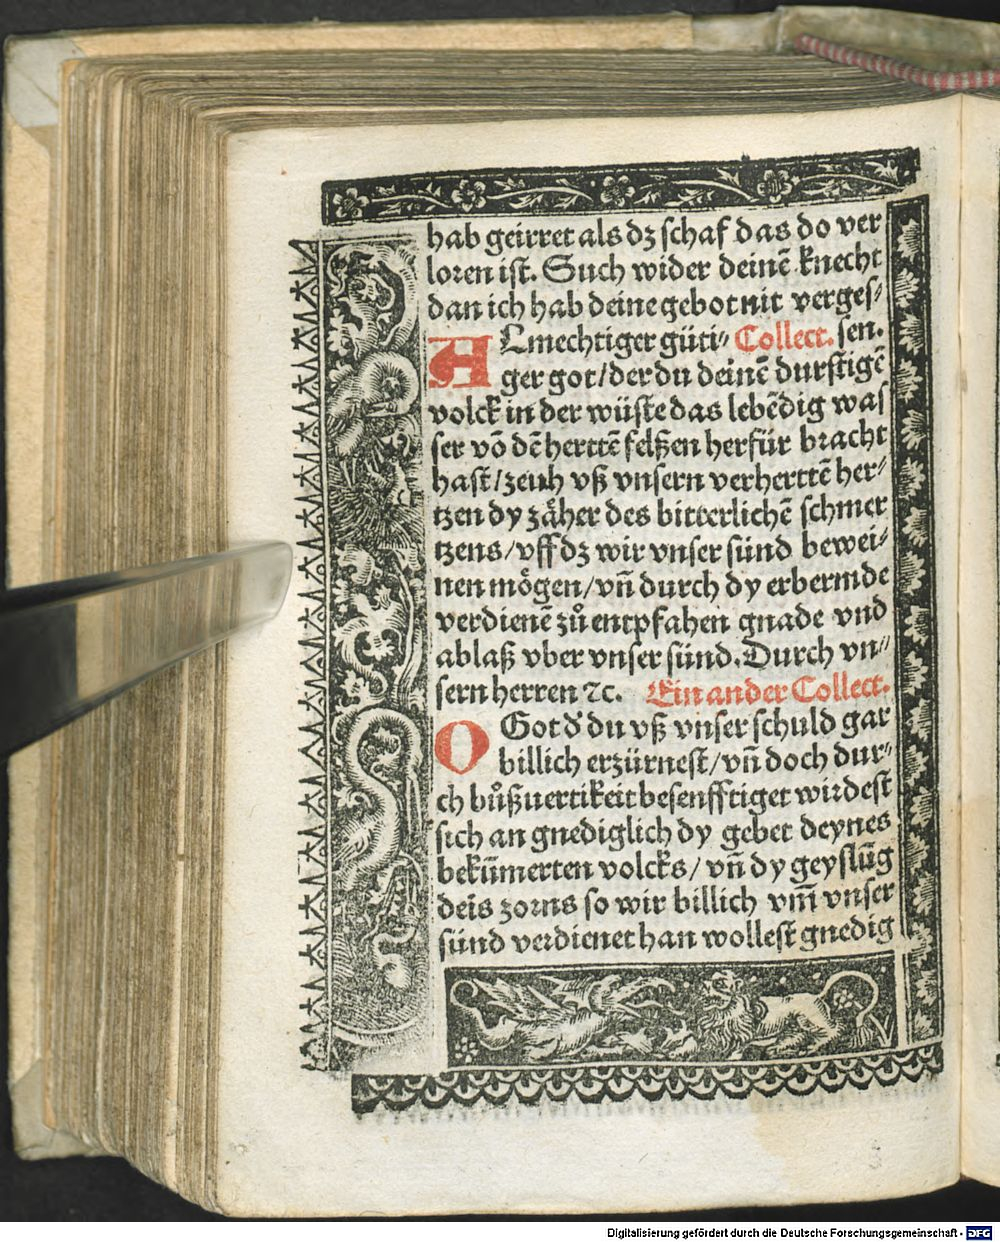 hab geirret als dz schaf das do ver
loren ist. Such wider deinē knecht
dan ich hab deine gebot nit verges⸗
ALmechtiger güti⸗ Collect. sen.
ger got/der du deinē durstigē
volck in der wüste das lebēdig was
ser vō dē herttē felßen herfür bracht
hast/zeuh vß vnsern verherttē her⸗
tzen dy zäher des bitterlichē schmer
tzens/vff dz wir vnser sünd bewei⸗
nen mögen/vn̄ durch dy erbermde
verdienē zů entpfahen gnade vnd
ablaß vber vnser sünd. Durch vn⸗
sern herren ⁊c. Ein ander Collect.
O Got d' du vß vnser schuld gar
billich erzürnest/vn̄ doch dur⸗
ch bůßuertikeit besenfftiget wirdest
sich an gnediglich dy gebet deynes
bekūmerten volcks/vn̄ dy geyslūg
deīs zorns so wir billich vm̄ vnser
sünd verdienet han wollest gnedig
Digitalisierung gefördert durch die Deutsche Forschungsgemeinschaft - DFG